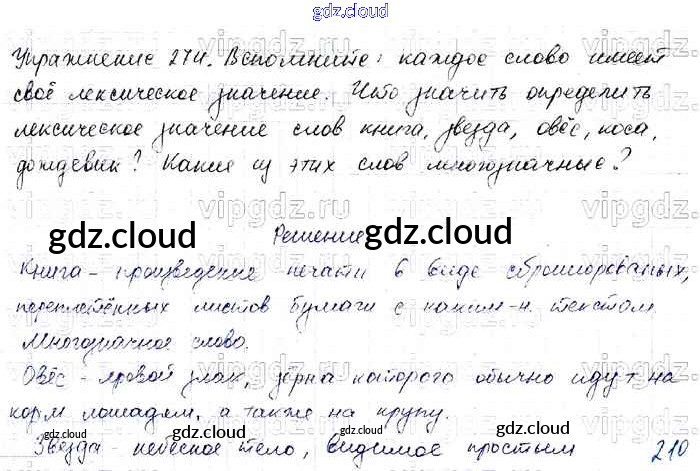 gdz.cloud
Упражнение 274. Вспомните: каждое слово имеет
своё лексическое значение. Что значить определить
лексическое значение слов книга, звезда, овёс, коса,
дождевик? Какие из этих слов многозначные?
vipgdz.ru vipgdz.ru vipgdz.ru
gdz.cloud Решение gdz.cloud
Книга - произведение печати в виде сброшюрованых,
переплетённых листов бумаги с каким-н. текстом.
Многозначное слово.
Овёс - яровой злак, зёрна которого обычно идут на
корм лошадям, а также на крупу.
gdz.cloud gdz.cloud gdz.cloud
Звезда - небесное тело, видимое простым 210